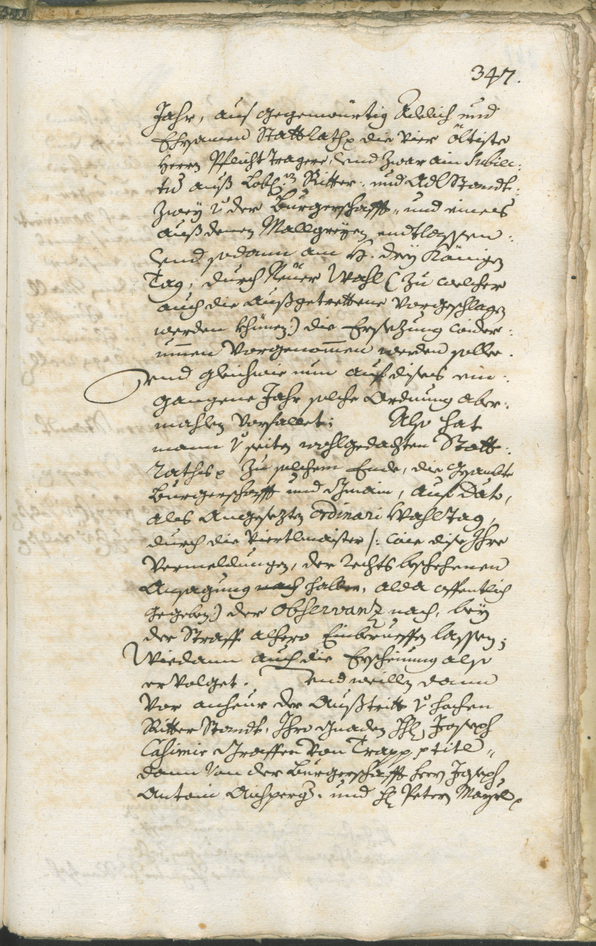 347.
Jahr, aus gegenwürtig Adelich und
Ehrsamen Stattrath die vier öltiste
Herrn Pflicht Tragere, und zwar ain
aus Löbl: Ritter- und Adl Standt:
Zwey v der Burgerschafft, und eines
auß denen Mallgreyen entlassen:
und sodann am H: drey Königen
Tag, durch Neüer Wahl (zu welcher
auch die Außgetrettene Vorgeschlagen
werden khünen) die Ersezung wider:
umen Vorgenomen werden solle.
Und gleichwie nun auf dises ein:
gangene Jahr solche Ordnung aber:
mahlen Vorfallet; Also hat
mann v seiten wohlgedachten Statt:
Raths zu solchem Ende, die gesambte
Burgerschafft und Gmain, auf dato,
als Angesezten ordinari Wahltag,
durch die Viertlmaister /: wie dise Ihre
Vermeldungen, der rechts beschehenen
Ansagung halber, alda offentlich
gegeben) der observanz nach, bey
der Straff alhero Einberueffen lassen;
Wiedann auch die Erscheinung also
ervolget. Und weillen dann
Vor anheur der Außtritt v hochen
Ritter Standt, Ihro Gnaden H: Joseph
Casimir Graffen von Trapp
dann von der Burgerschafft herr Joseph
Antoni und H: Peter Mayr